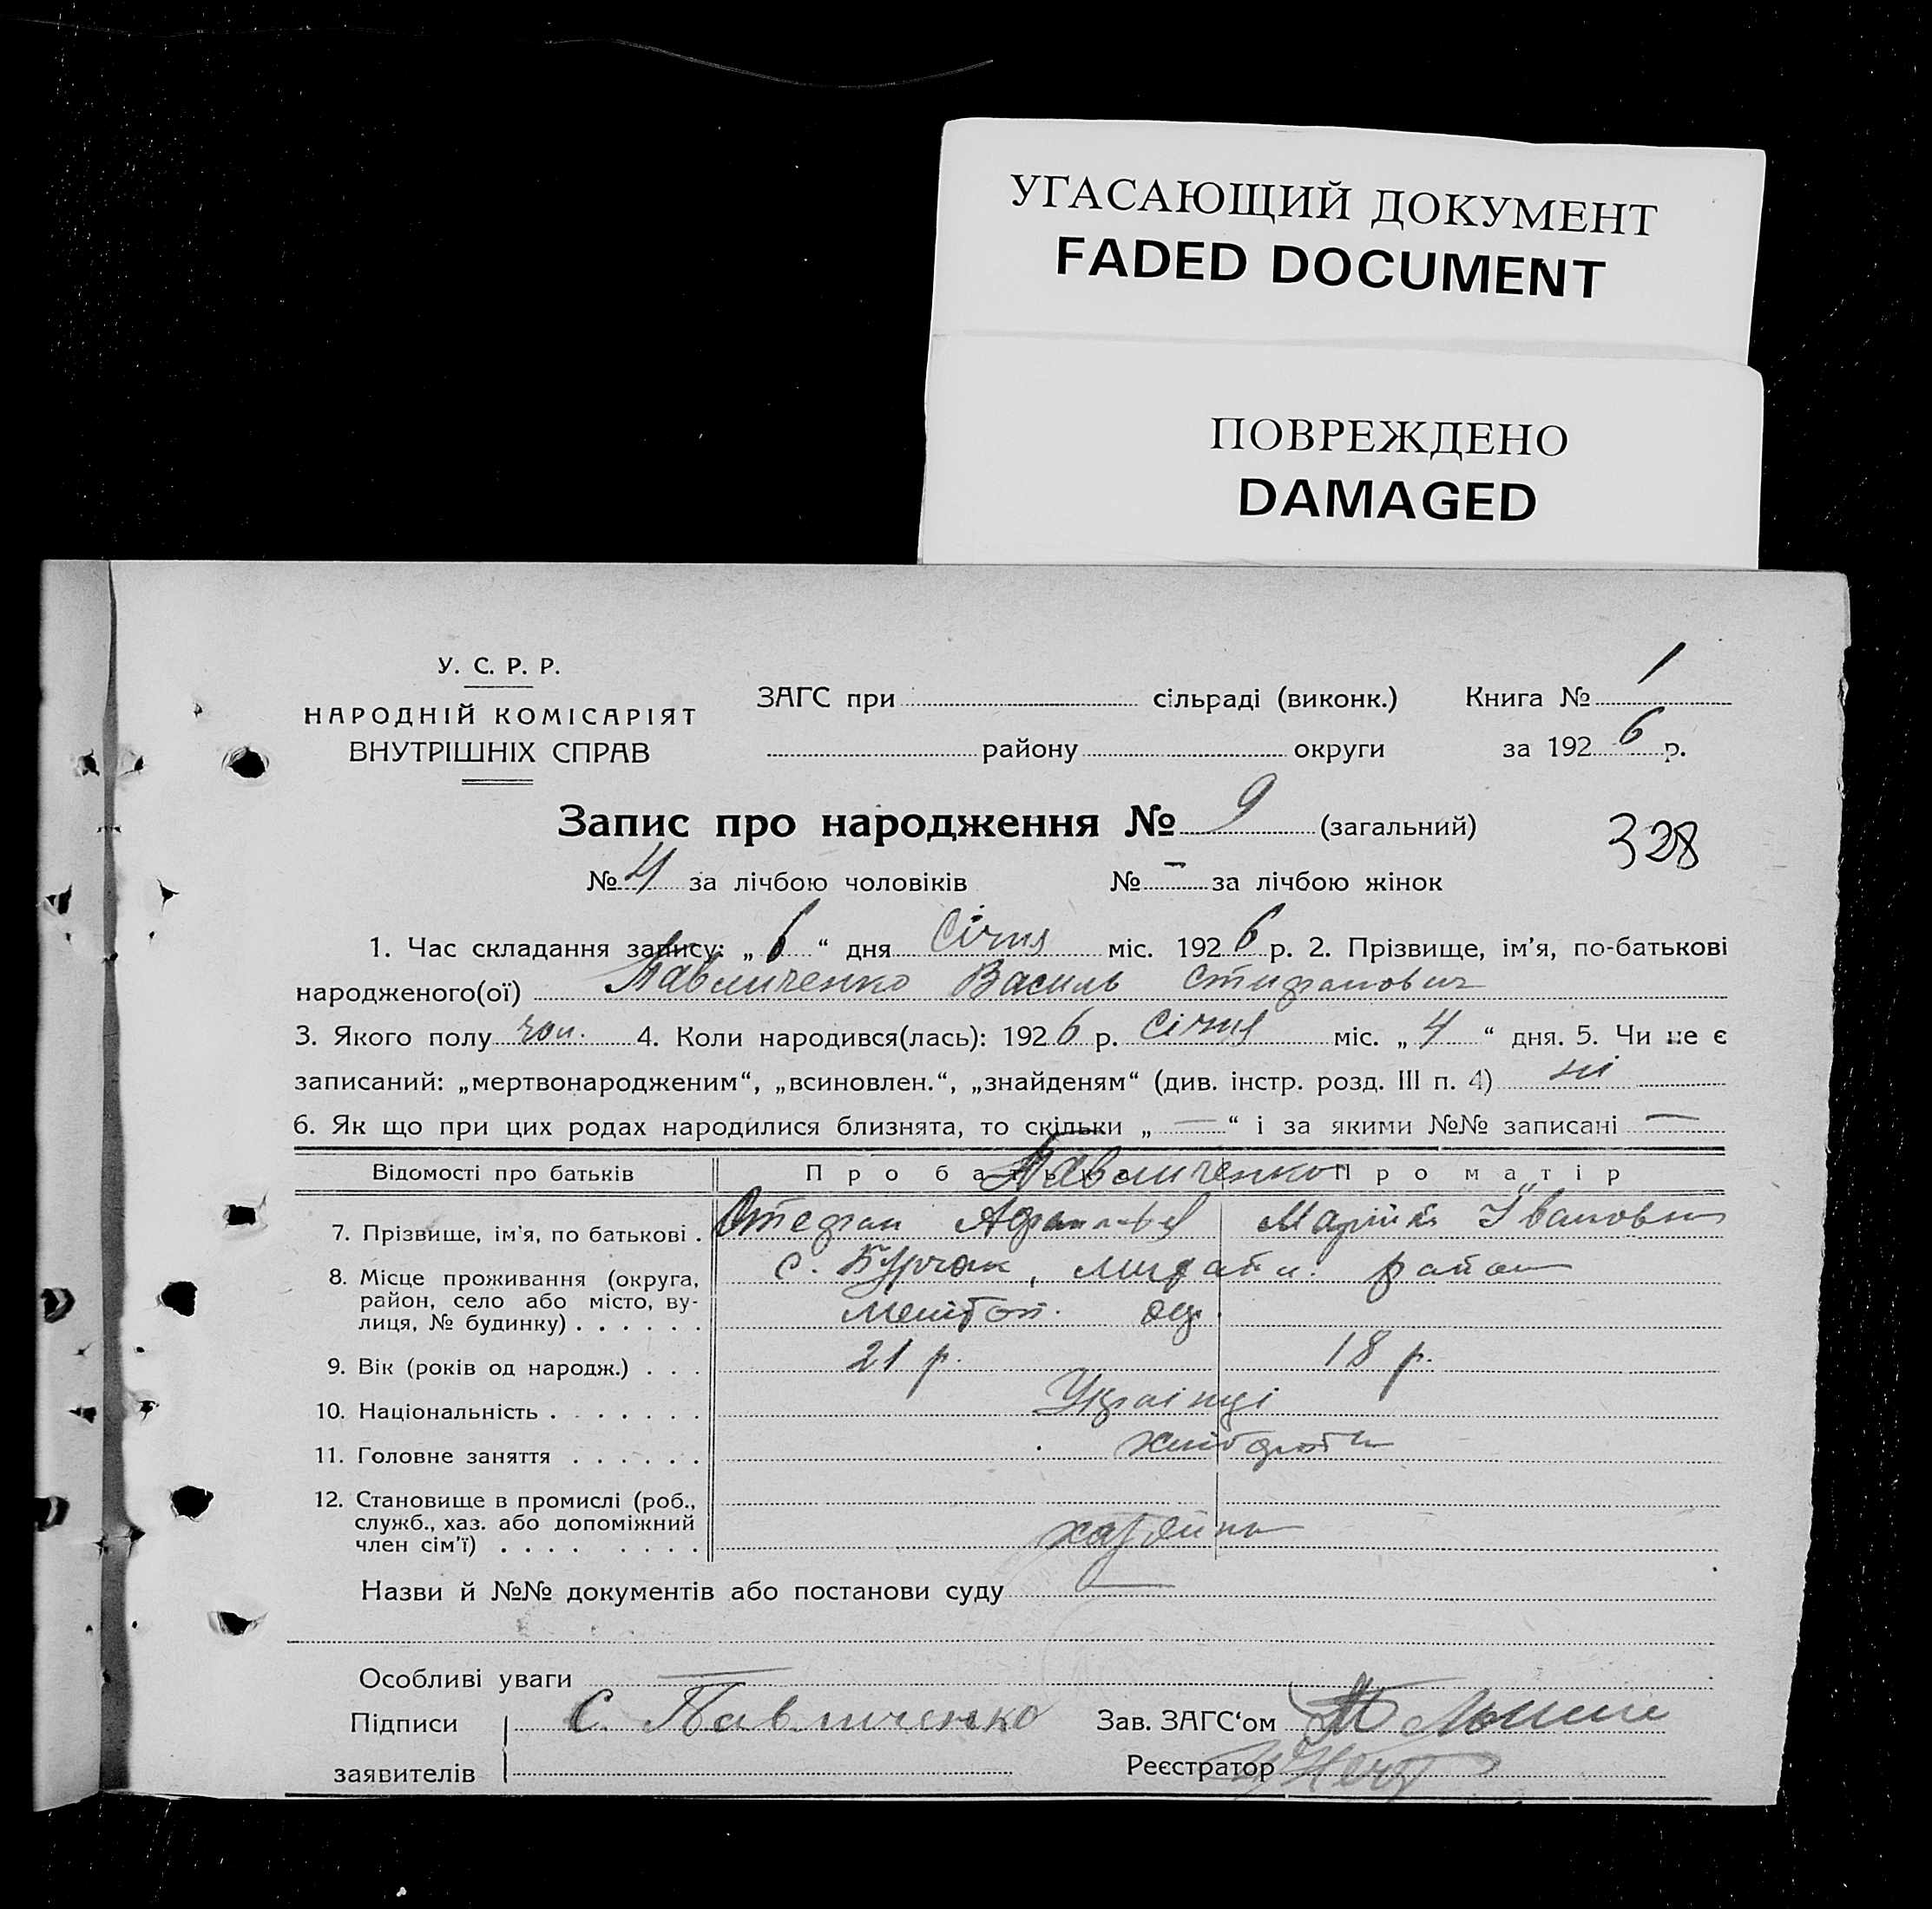 УГАСАЮЩИЙ ДОКУМЕНТ
FADED DOCUMENT
ПОВРЕЖДЕНО
DAMAGED
У. С. Р. Р.
НАРОДНІЙ КОМІСАРІЯТ
ВНУТРІШНІХ СПРАВ
ЗАГС при сільраді (виконк.) Книга № 1
району округи за 1926 р.
Запис про народження № 9 (загальний)
328
№ 4 за лічбою чоловіків № - за лічбою жінок
1. Час складання запису: „6“ дня Січня міс. 1926 р. 2. Прізвище, ім'я, по-батькові
народженого(ої) Павличенко Василь Стифанович
3. Якого полу чол. 4. Коли народився(лась): 1926 р. Січня міс. „4“ дня. 5. Чи не є
записаний: „мертвонародженим“, „всиновлен.“, „знайденям“ (див. інстр. розд. III п. 4) ні
6. Як що при цих родах народилися близнята, то скільки „—“ і за якими №№ записані —
Відомості про батьків Про батька Про матір
Павличенко
7. Прізвище, ім'я, по батькові . Стефан Марійка Івановна
8. Місце проживання (округа, район, село або місто, вулиця, № будинку) . . . . . . с. район
Мелітоп. окр.
9. Вік (років од народж.) . . . 21 р. 18 р.
10. Національність . . . . . . . Українці
11. Головне заняття . . . . . . хлібороби
12. Становище в промислі (роб.,
служб., хаз. або допоміжний
член сім'ї) . . . . . . . . хазяїни
Назви й №№ документів або постанови суду —
Особливі уваги —
Підписи С. Павличенко Зав. ЗАГС‘ом
заявителів Реєстратор